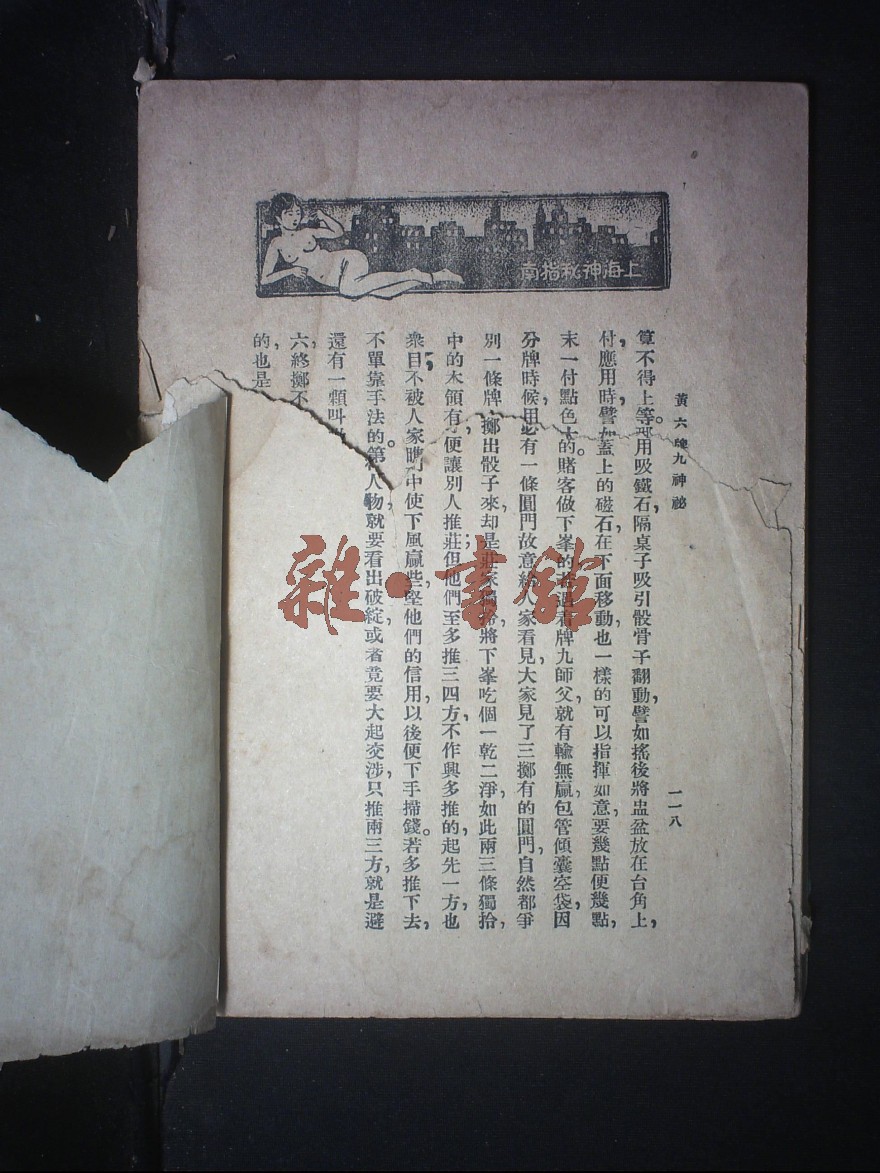 上海神秘指南
黃六牌九神祕
一一八
算不得上等。那用吸鐵石隔桌子吸引骰骨子翻動,譬如搖後將盅盆放在台角上,
付,應用時,譬如蓋上的磁石,在下面移動,也一樣的可以指揮如意,要幾點便幾點,
末一付點色大的。賭客做下峯的若遇着牌九師父,就有輸無贏,包管傾囊空袋,因
分牌時候,用必有一條圓門,故意給人家看見,大家見了三擲有的圓門,自然都爭
別一條牌,擲出骰子來,却是莊家獨掃,將下峯吃個一乾二淨,如此兩三條獨拾,
中的本領有了,便讓別人推莊;但他們至多推三四方,不作興多推的,起先一方,也
衆目,不被人家瞧中,使下風贏些,堅他們的信用,以後便下手掃錢。若多推下去,
不單靠手法的。第人物,就要看出破綻,或者竟要大起交涉,只推兩三方,就是避
還有一顆叫
六,終擲不
的,也是
雜·書館